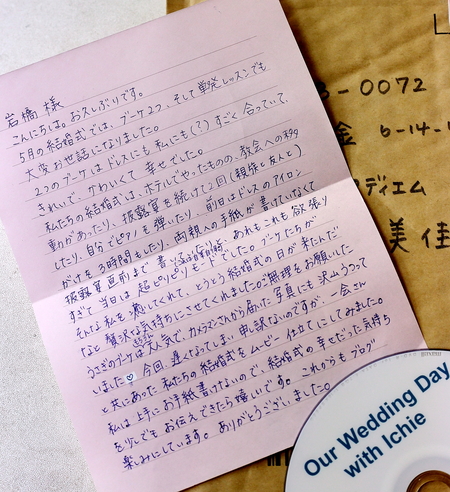 岩橋 様
こんにちは。お久しぶりです。
5月の結婚式では、ブーケ2つ、そして単発レッスンでも
大変お世話になりました。
2つのブーケはドレスにも私にも(?)すごく合っていて、
きれいで、かわいくて 幸せでした。
私たちの結婚式は、ホテルでやったものの、教会への移
動があったり、披露宴を続けて2回(親族と友人と)
したり、自分でピアノを弾いたり、前日はドレスのアイロン
がけを3時間もしたり、両親への手紙が書けていなくて
披露宴直前まで
すぎて当日は超ピリピリモードでした。あれもこれも欲張り
そんな私を癒してくれて、とうとう結婚式の日が来たんだ
なと贅沢な気持ちにさせてくれました。ご無理をお願いした
うさぎのブーケは大人気で、カメラマンさんから届いた写真にも沢山うつって
いました♡ 今回、遅くなってしまい申し訳ないのですが、一会さん
と共にあった私たちの結婚式をムービー仕立てにしてみました。
私は上手にお手紙書けないので、結婚式の幸せだった気持ち
を少しでもお伝えできたら嬉しいです。これからもブログ
楽しみにしています。ありがとうございました。
3-0072
6-14-
ディエム
美佳
Our Wedding Day
with Ichie